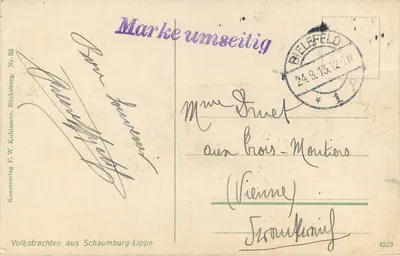 Marke umseitig
BIELEFELD
24.9.13.12-1N
* 1 A
Bon souvenir
Mme Druet
aux Trois-Moutiers
(Vienne)
Frankreich
Kunstverlag F. W. Kuhlmann, Bückeburg. Nr. 53
Volkstrachten aus Schaumburg-Lippe
4249